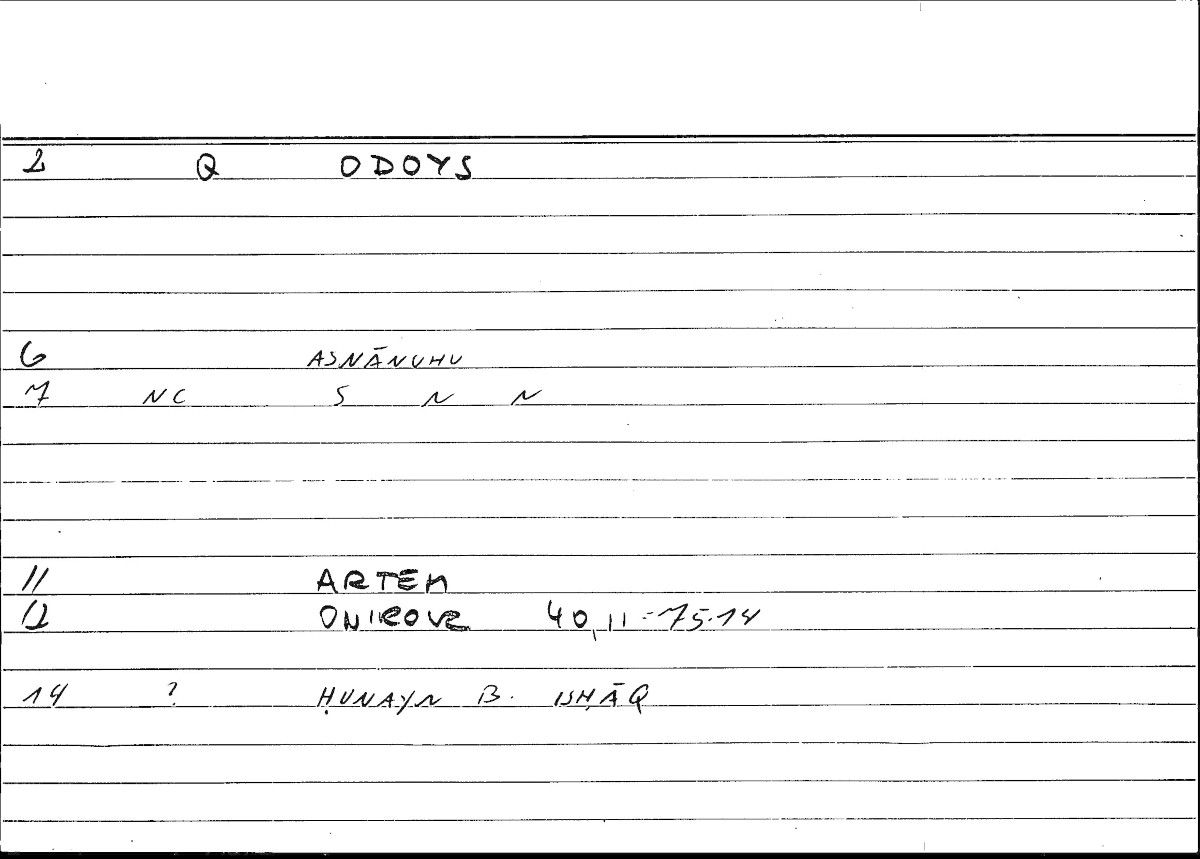 2 Q ODOYS
6 ASNĀNUHU
7 NC S N N
11 ARTEM
12 ONIROVR 40,11-75.14
14 ? ḤUNAYN B. ISḤĀQ